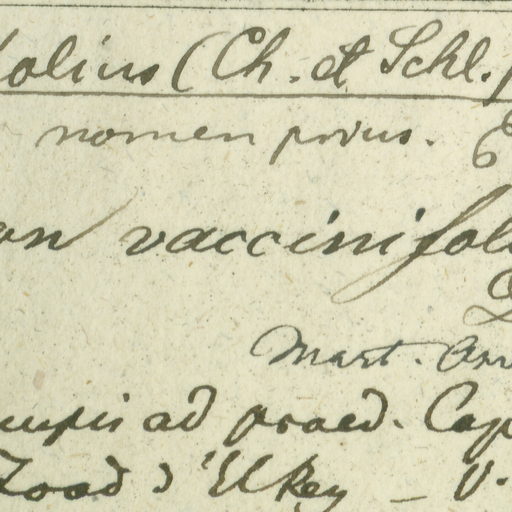 folius (Ch. et Schl.)
nomen prius.
on vaccinifol
Mart.
rupis ad praed. Cap
Road d'El Rey – V.